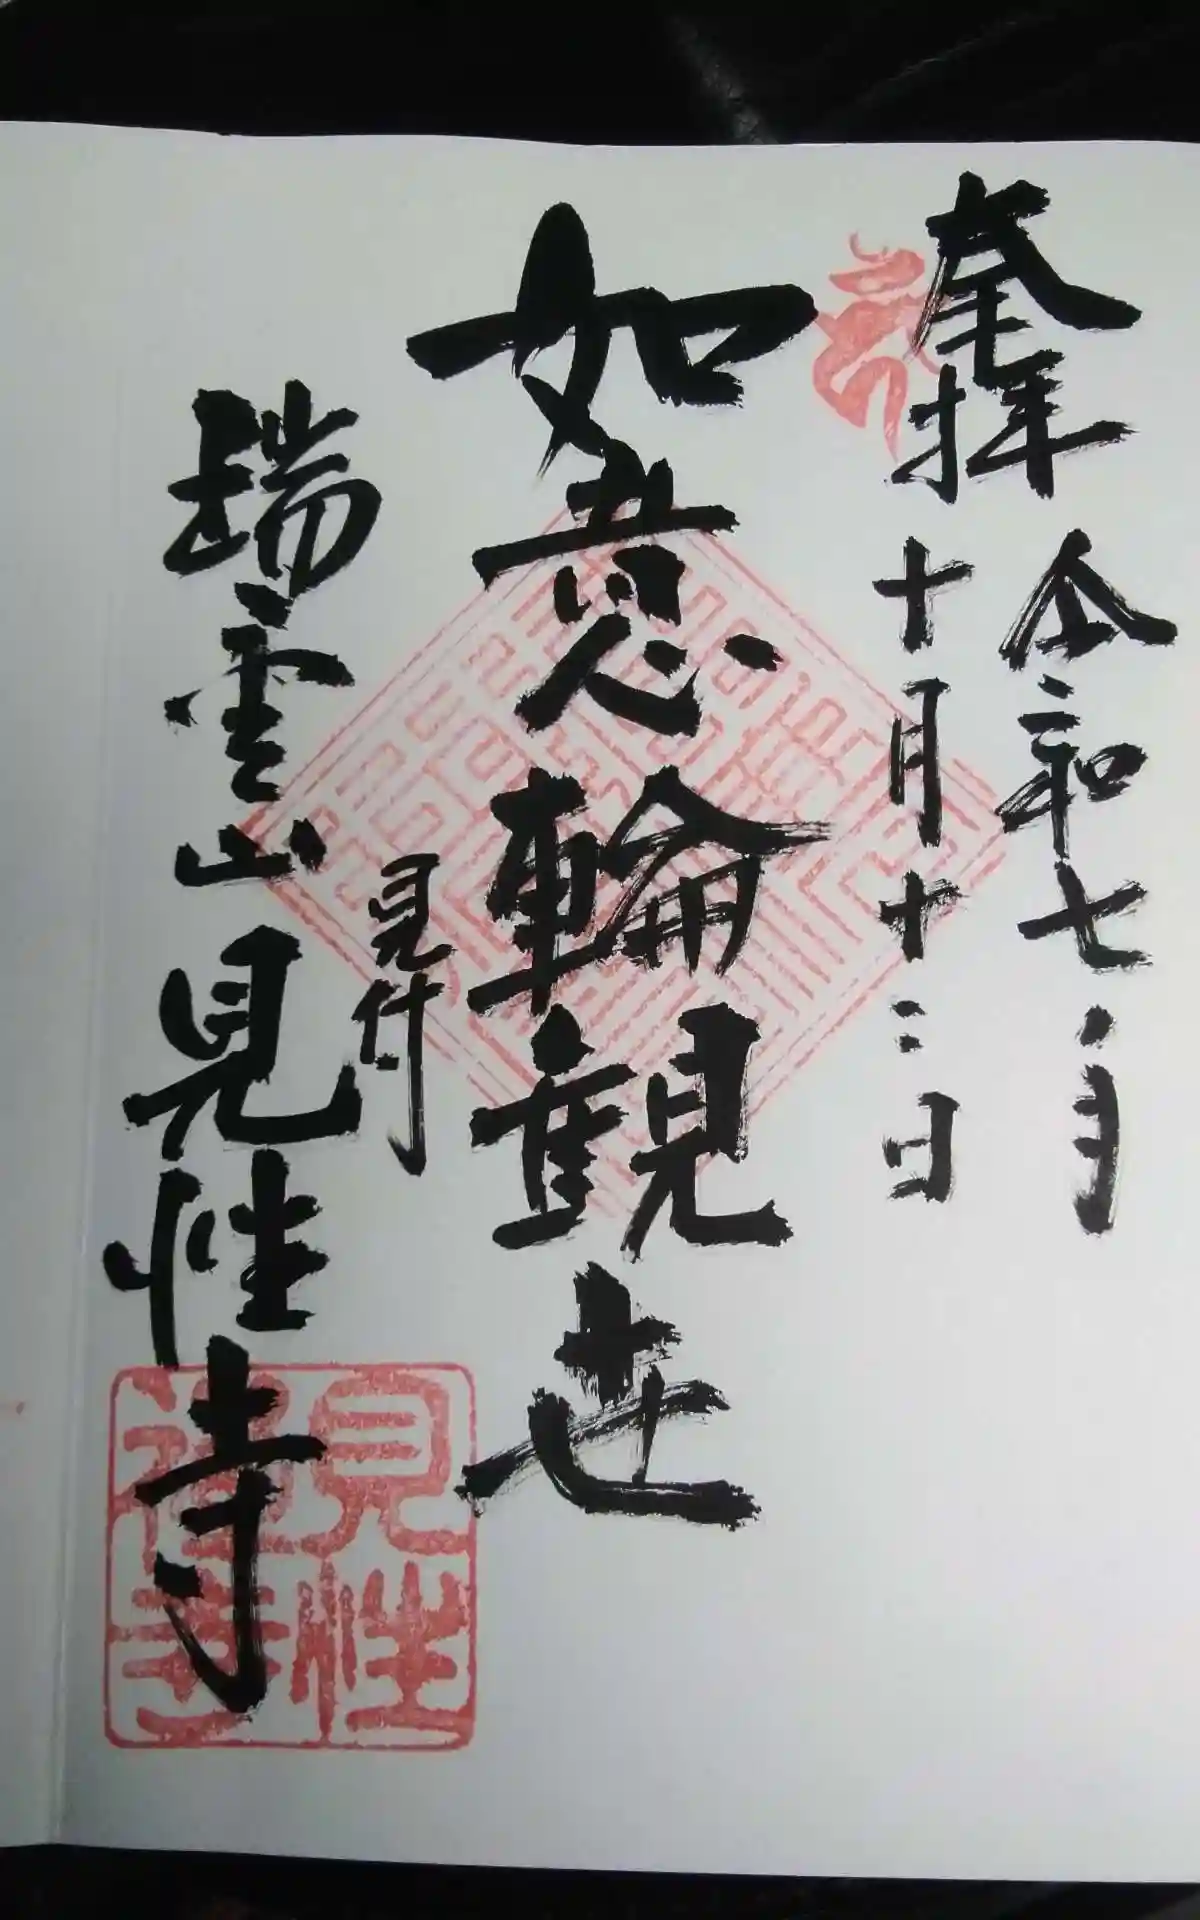 奉拝
令和七年
十月十二日
如意輪観世
見付
瑞雲山見性寺
見性
禅寺